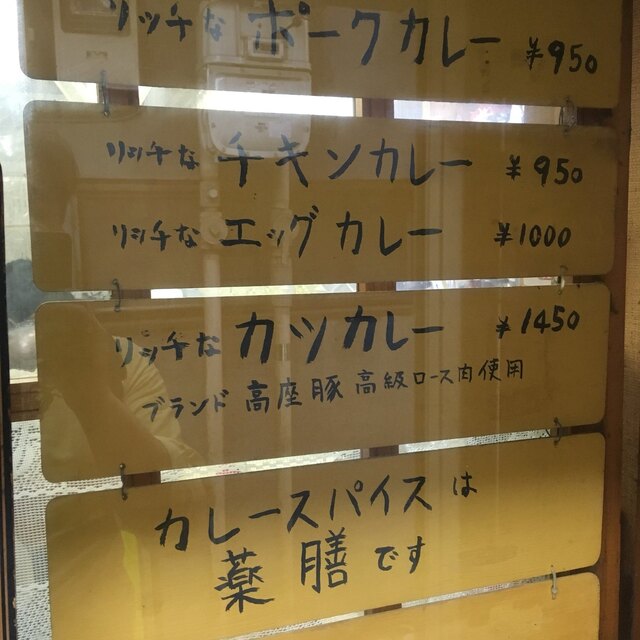 リッチな ポークカレー ¥950
リッチな チキンカレー ¥950
リッチな エッグカレー ¥1000
リッチな カツカレー ¥1450
ブランド 高座豚 高級ロース肉使用
カレースパイスは
薬膳です